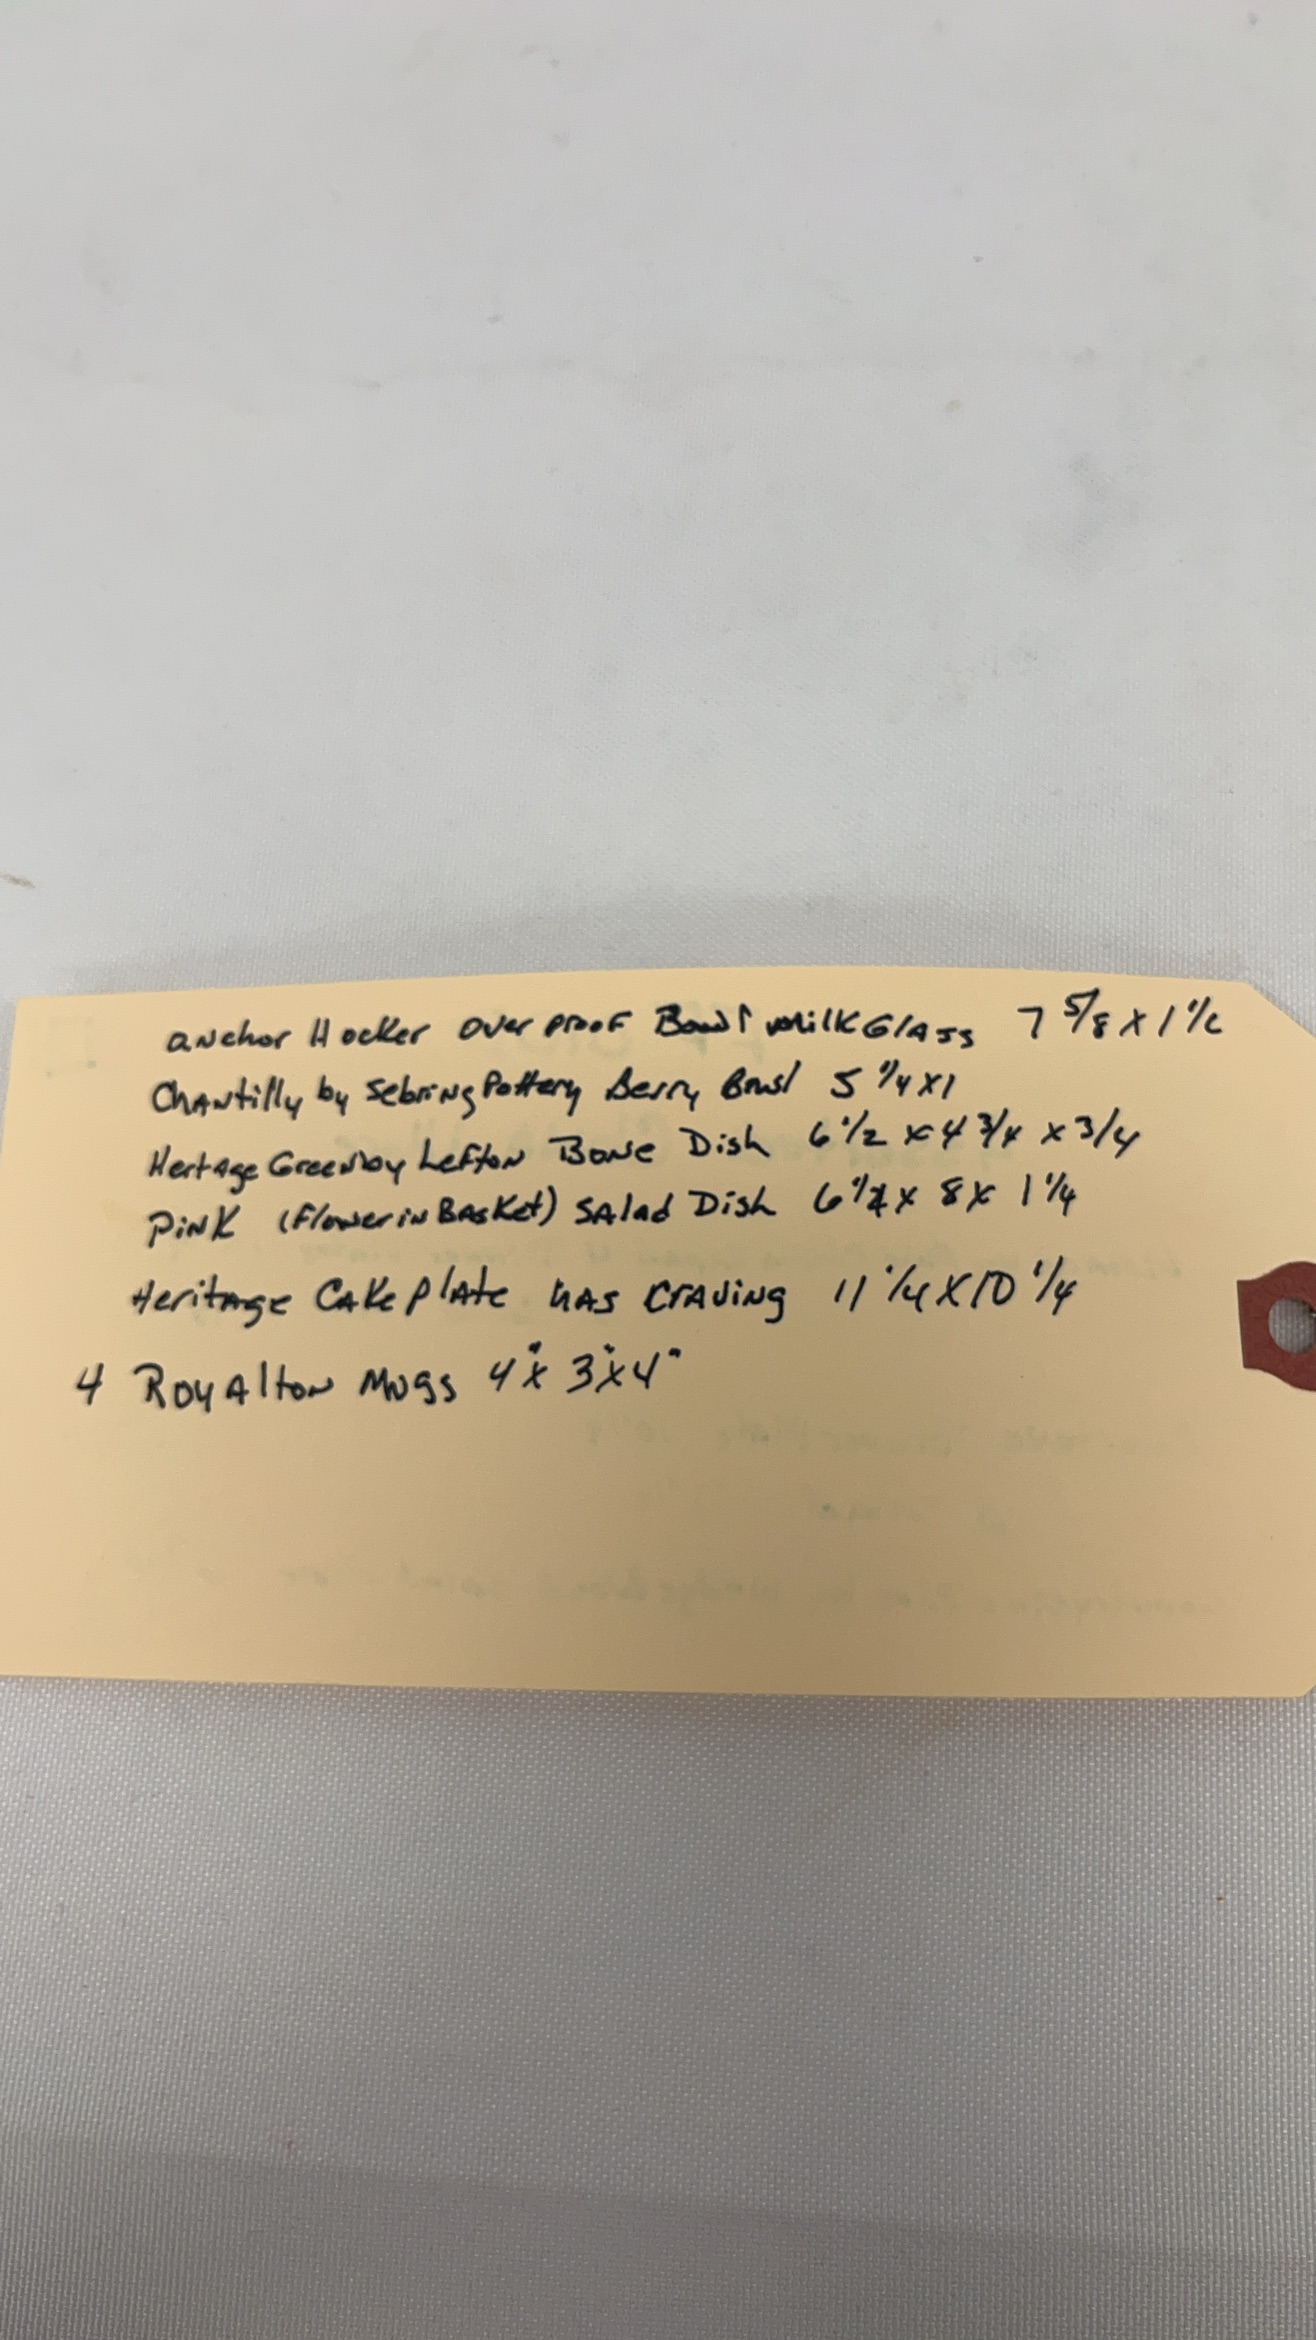 anchor Hocker over proof Bowl milk Glass 7 5/8 x 1 1/2
Chantilly by Sebring Pottery Berry Bowl 5 1/4 x 1
Hertage Green by Lefton Bone Dish 6 1/2 x 4 3/4 x 3/4
Pink (Flower in Basket) Salad Dish 6 x 8 x 1 1/4
Heritage Cake plate has craving 11 1/4 x 10 1/4
4 Royalton Mugs 4" x 3" x 4"